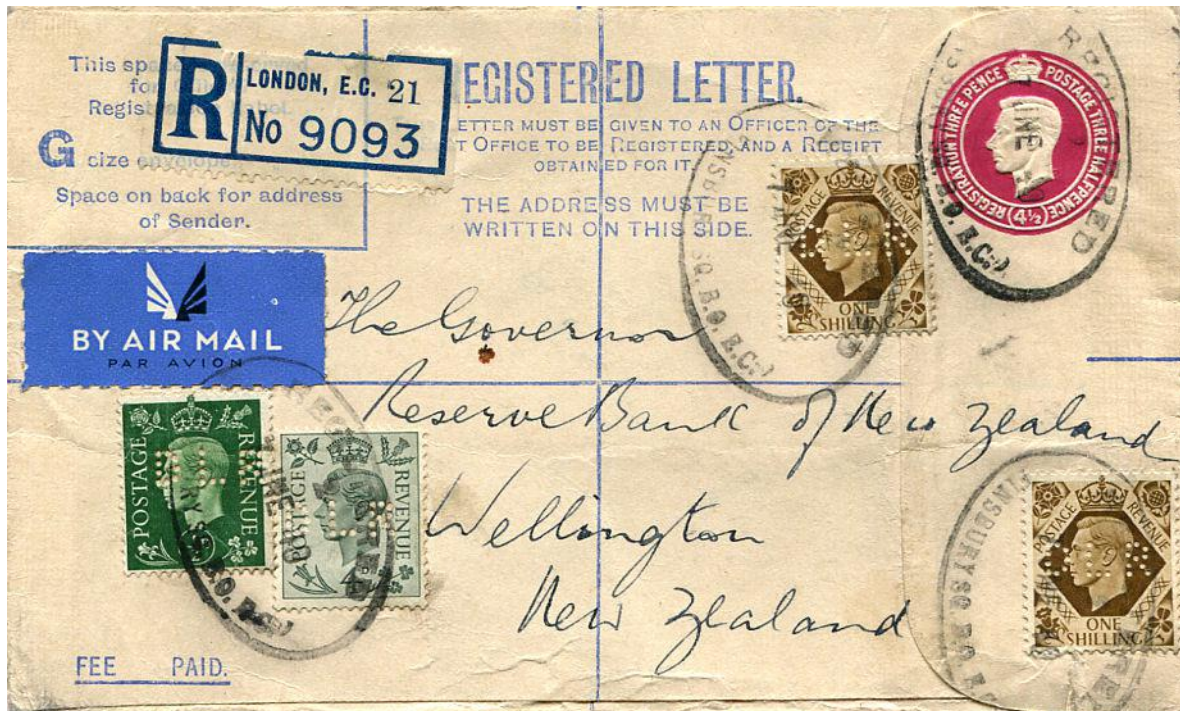 This sp
for
Regist
G size envelope.
Space on back for address
of Sender.
R LONDON, E.C. 21
No 9093
REGISTERED LETTER.
ETTER MUST BE GIVEN TO AN OFFICER OF THE
T OFFICE TO BE REGISTERED, AND A RECEIPT
OBTAINED FOR IT.
THE ADDRESS MUST BE
WRITTEN ON THIS SIDE.
REGISTRATION THREE PENCE POSTAGE THREE HALFPENCE (4½)
REGISTERED
POSTAGE REVENUE
ONE
SHILLING
BY AIR MAIL
PAR AVION
The Governor
Reserve Bank of New Zealand
Wellington
New Zealand
POSTAGE REVENUE
POSTAGE REVENUE
4D
POSTAGE REVENUE
ONE
SHILLING
FINSBURY SQ.
FEE PAID.